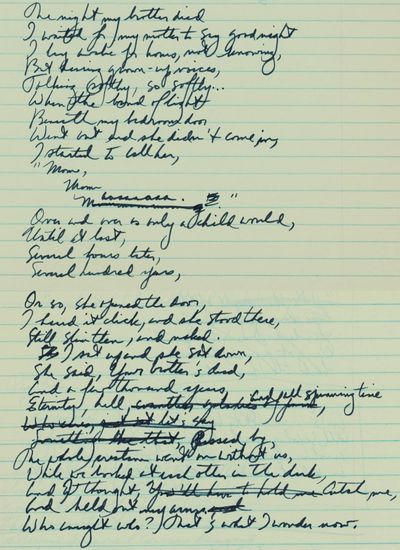 The night my brother died
I waited for my mother to say goodnight
I lay awake for hours, not knowing,
But hearing grown-up voices,
Talking softly, so softly...
When the band of light
Beneath my bedroom door
Went out and she didn't come in,
I started to call her,
"Mom,
Mom
"
Over and over as only a child would,
Until at last,
Several hours later,
Several hundred years,
Or so, she opened the door,
I heard it click, and she stood there,
Still, and naked.
I sat up and she sat down,
She said, Your brother's dead,
And a few thousand years,
Eternity, hell, spinning time
Passed by,
The whole creation went on without us,
While we looked at each other in the dark,
And I thought, You'll have to hold me Catch me,
And held out my arms
Who caught who? That's what I wonder now.